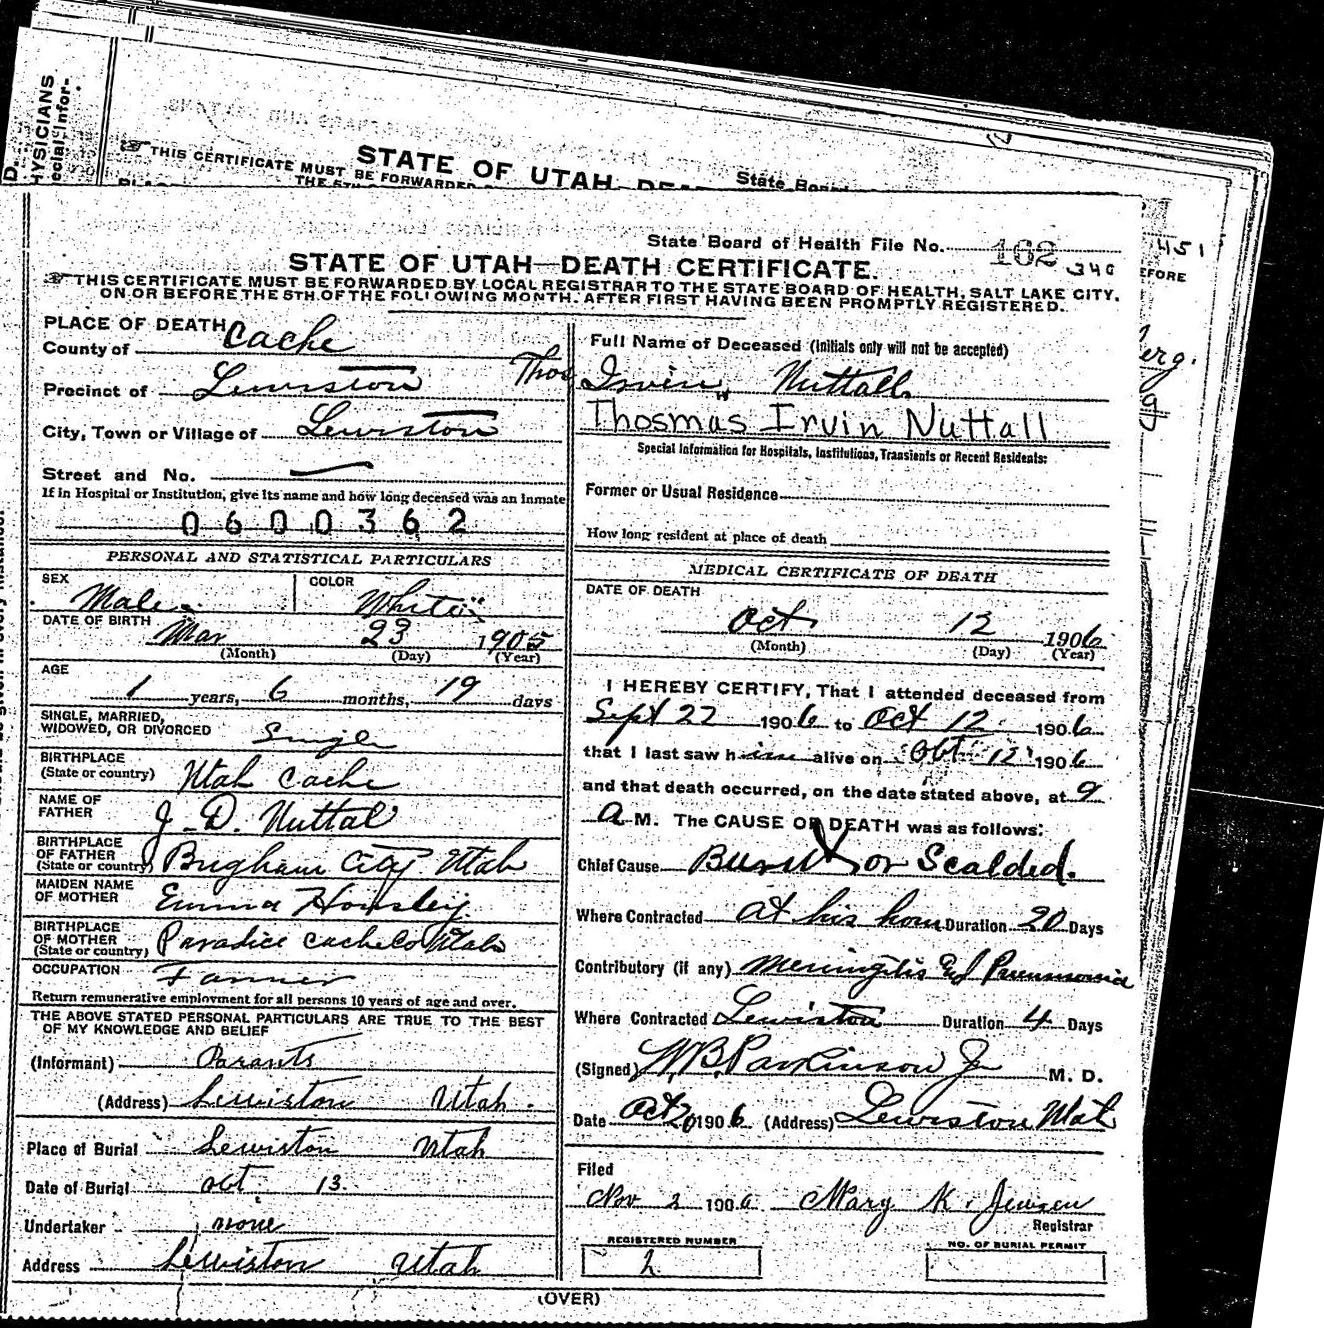 PHYSICIANS
STATE OF UTAH
THIS CERTIFICATE MUST BE FORWARDED
State Board
451
State Board of Health File No. 162 340
STATE OF UTAH—DEATH CERTIFICATE.
THIS CERTIFICATE MUST BE FORWARDED BY LOCAL REGISTRAR TO THE STATE BOARD OF HEALTH, SALT LAKE CITY,
ON OR BEFORE THE 5TH OF THE FOLLOWING MONTH, AFTER FIRST HAVING BEEN PROMPTLY REGISTERED.
PLACE OF DEATH
County of Cache
Precinct of Lewiston
City, Town or Village of Lewiston
Street and No. —
If in Hospital or Institution, give its name and how long deceased was an Inmate
0600362
Full Name of Deceased (Initials only will not be accepted)
Thos Irvin Nuttall
Thosmas Irvin Nuttall
Special Information for Hospitals, Institutions, Transients or Recent Residents:
Former or Usual Residence
How long resident at place of death
PERSONAL AND STATISTICAL PARTICULARS
SEX Male
COLOR White
DATE OF BIRTH Mar 23 1905
(Month) (Day) (Year)
AGE
1 years, 6 months, 19 days
SINGLE, MARRIED,
WIDOWED, OR DIVORCED Single
BIRTHPLACE
(State or country) Utah Cache
NAME OF
FATHER J. D. Nuttal
BIRTHPLACE
OF FATHER
(State or country) Brigham City Utah
MAIDEN NAME
OF MOTHER Emma Housley
BIRTHPLACE
OF MOTHER
(State or country) Paradice Cache Co Utah
OCCUPATION Farmer
Return remunerative employment for all persons 10 years of age and over.
THE ABOVE STATED PERSONAL PARTICULARS ARE TRUE TO THE BEST
OF MY KNOWLEDGE AND BELIEF
(Informant) Parants
(Address) Lewiston Utah.
Place of Burial Lewiston Utah
Date of Burial Oct. 13
Undertaker none
Address Lewiston Utah
MEDICAL CERTIFICATE OF DEATH
DATE OF DEATH
Oct 12 1906
(Month) (Day) (Year)
I HEREBY CERTIFY, That I attended deceased from
Sept 22 1906 to Oct 12 1906
that I last saw him alive on Oct 12 1906
and that death occurred, on the date stated above, at 9
A M. The CAUSE OF DEATH was as follows:
Chief Cause Burnt or Scalded.
Where Contracted At his home Duration 20 Days
Contributory (if any) Meningitis & Pneumonia
Where Contracted Lewiston Duration 4 Days
(Signed) W.B. Parkinson Jr M. D.
Date Oct 20 1906 (Address) Lewiston Utah
Filed
Nov 2 1906 Mary K. Jensen
Registrar
REGISTERED NUMBER
2
NO. OF BURIAL PERMIT
(OVER)